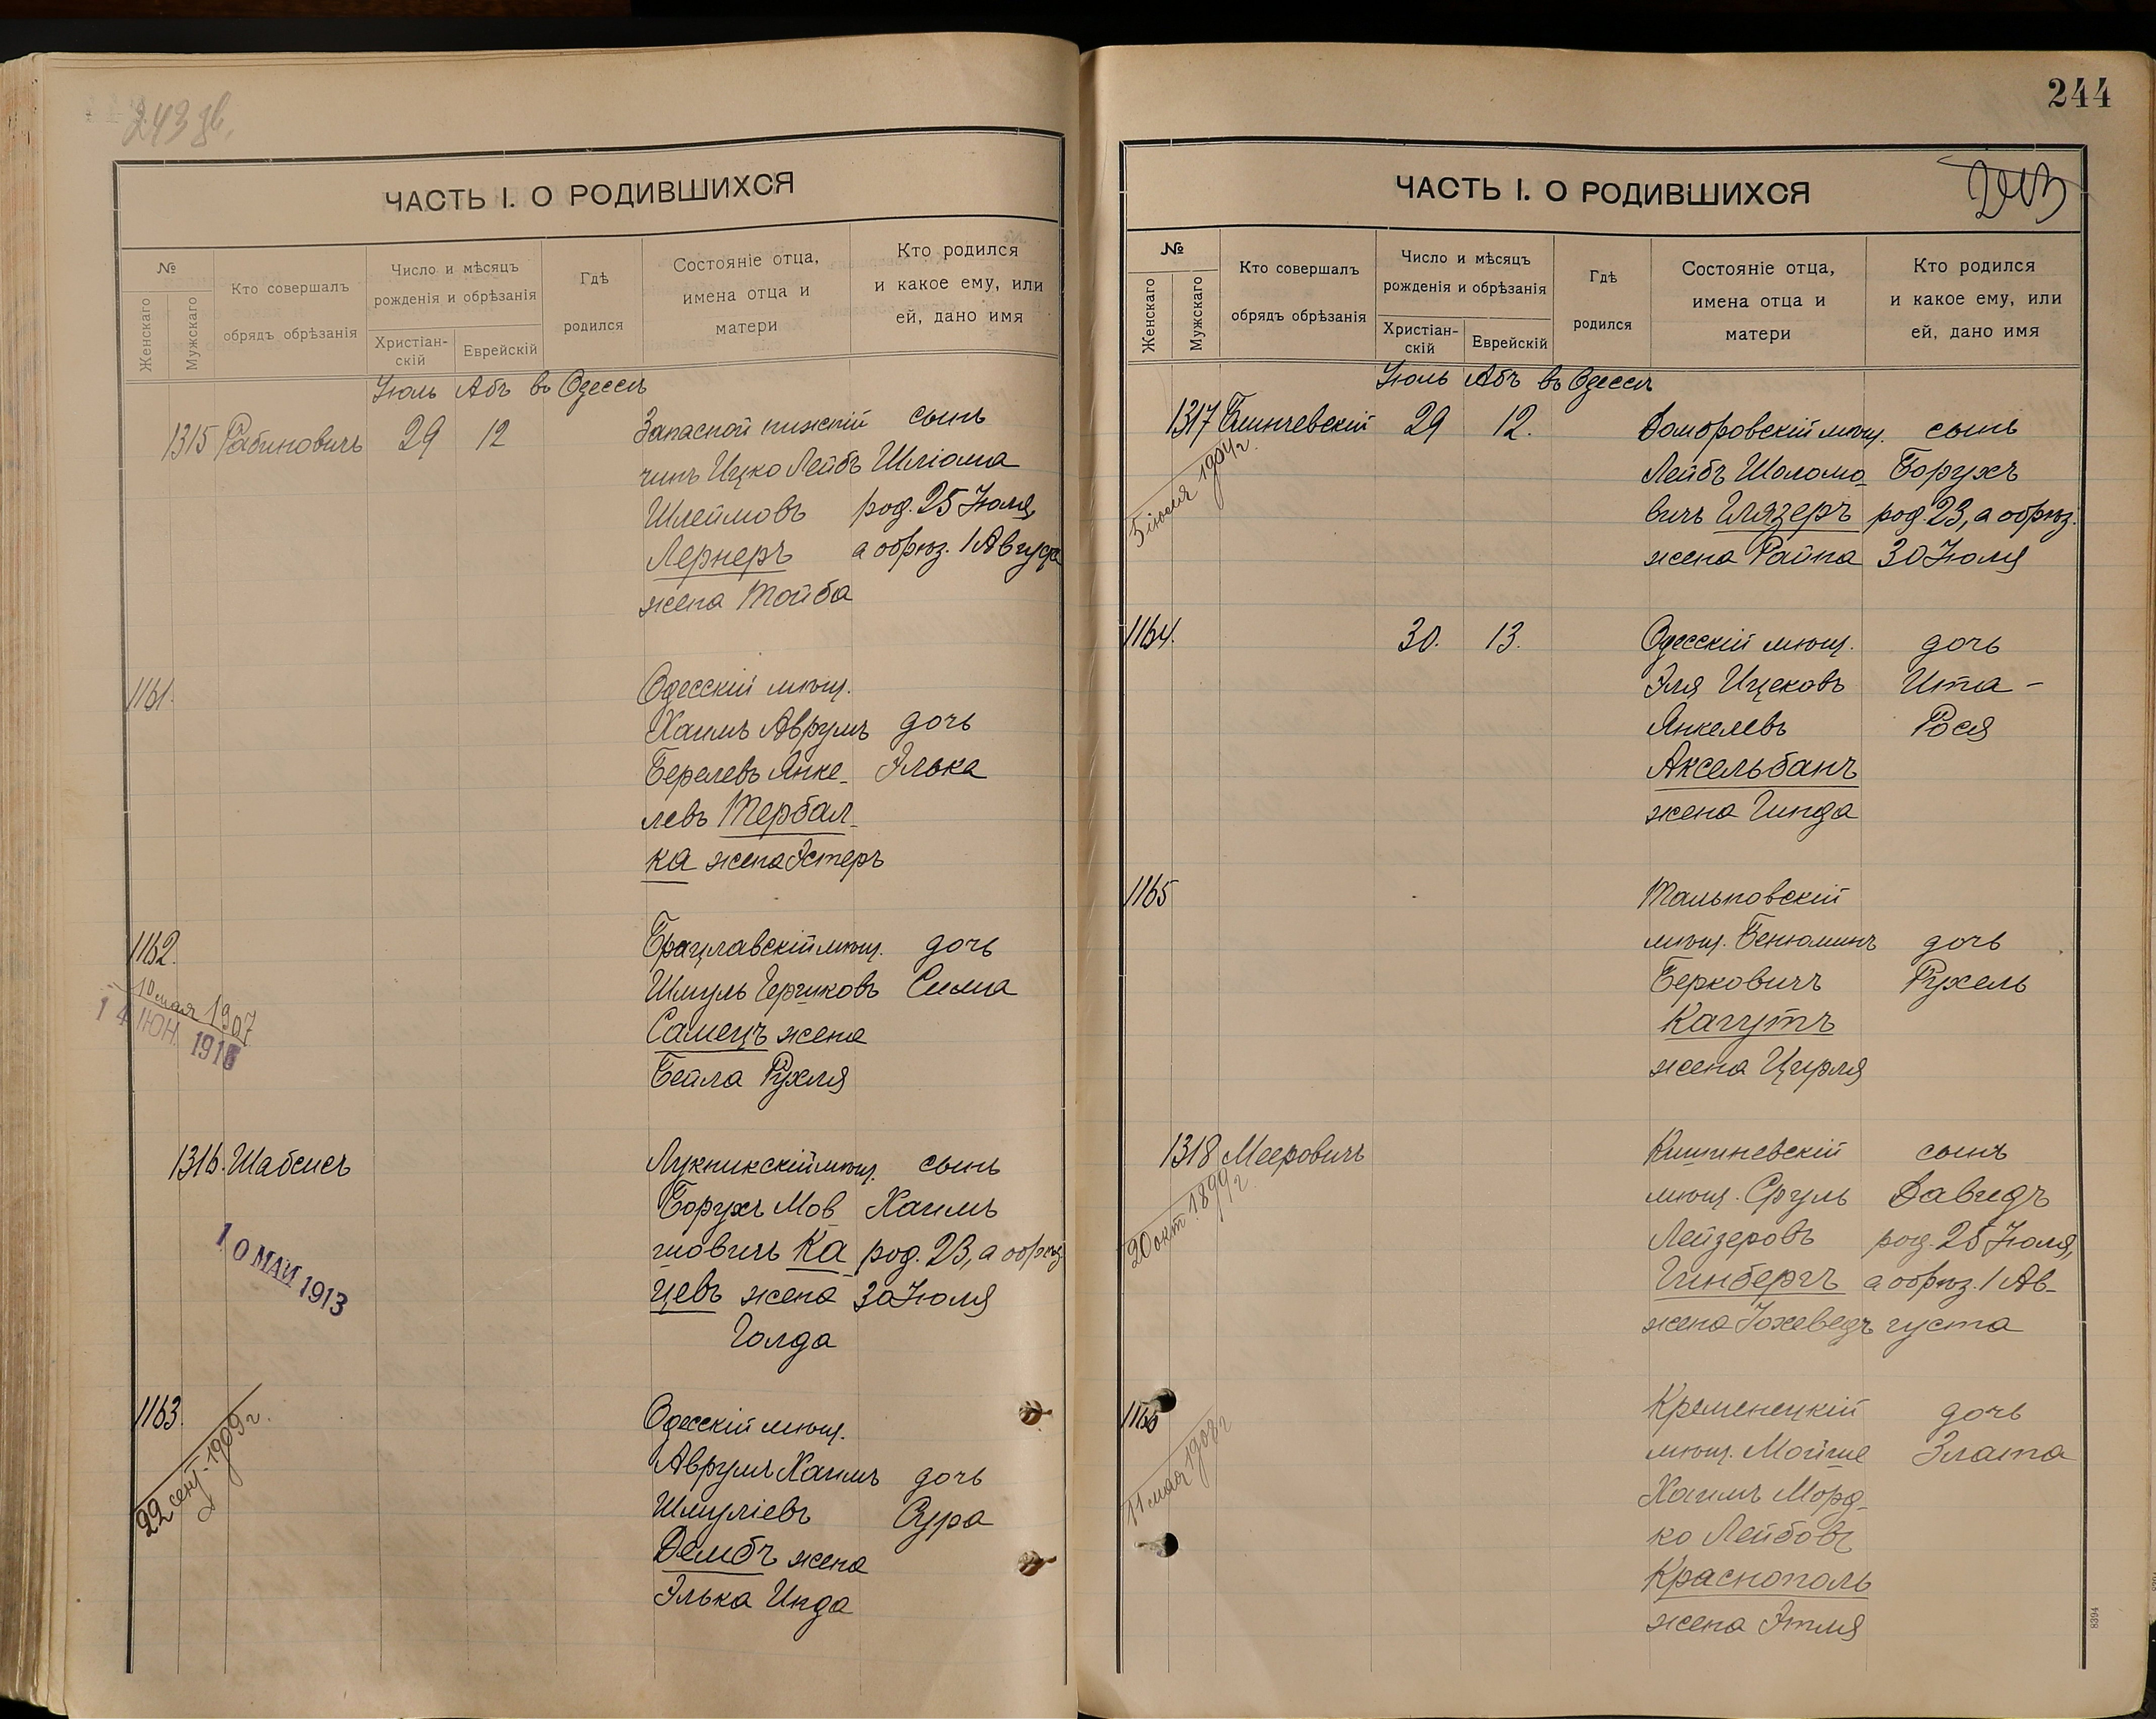 243 об.
ЧАСТЬ I. О РОДИВШИХСЯ
№
Женскаго
Мужскаго
Кто совершалъ
обрядъ обрѣзанія
Число и мѣсяцъ
рожденія и обрѣзанія
Христіан-
скій
Еврейскій
Гдѣ
родился
Состояніе отца,
имена отца и
матери
Кто родился
и какое ему, или
ей, дано имя
Іюль Абъ въ Одессѣ
1315 Рабиновичъ 29 12 Запасной нижній сынъ
чинъ Ицко Лейбъ Шліома
Шлеймовъ род. 25 Іюля,
Лернеръ а обрѣз. 1 Августа
жена Тойба
1161. Одесскій мѣщ.
Хаимъ Аврумъ дочь
Берелевъ Янке- Элька
левъ Тербал-
ка жена Эстеръ
1162. Брацлавскій мѣщ. дочь
Шмуль Гершковъ Сима
10 мая 1907
14 ІЮН. 191
Самецъ жена
Бейла Рухля
1316. Шабсисъ Лукникскій мѣщ. сынъ
Борухъ Мов Хаимъ
шовичъ Ка род. 23, а обрѣз
цевъ жена 30 Іюля
10 МАЙ 1913
Голда
1163. Одесскій мѣщ.
22 сент. 1909 г.
Аврумъ Хаимъ дочь
Шмуліевъ Сура
Дембъ жена
Элька Инда
244
ЧАСТЬ I. О РОДИВШИХСЯ
№
Женскаго
Мужскаго
Кто совершалъ
обрядъ обрѣзанія
Число и мѣсяцъ
рожденія и обрѣзанія
Христіан-
скій
Еврейскій
Гдѣ
родился
Состояніе отца,
имена отца и
матери
Кто родился
и какое ему, или
ей, дано имя
Іюль Абъ въ Одессѣ
1317 29 12. Домбровскій мѣщ. сынъ
5 1904 г.
Лейбъ Шоломо- Борухъ
вичъ Глязеръ род. 23, а обрѣз.
жена Райна 30 Іюля
1164. 30. 13. Одесскій мѣщ. дочь
Эля Ицековъ Ита-
Янкелевъ Рося
Аксельбанъ
жена Гинда
1165 Тальновскій
мѣщ. Бенюминъ дочь
Берковичъ Рухель
Кагутъ
жена Цирля
1318 Мееровичъ Кишиневскій сынъ
20 окт. 1899 г.
мѣщ. Сруль Давидъ
Лейзеровъ род. 25 Іюля,
Гинбергъ а обрѣз. 1 Ав-
жена Іохеведъ густа
1166 Кременецкій дочь
11 мая 1908 г.
мѣщ. Мойше Злата
Хаимъ Морд-
ко Лейбовъ
Краснополь
жена Этля
8394